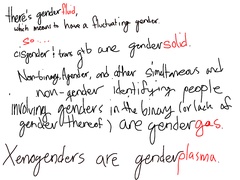 there's genderfluid,
which means to have a fluctuating gender.
so....
cisgender & trans g/b are gendersolid.
Non-binary, Agender, and other simultaneous and
non-gender identifying people
involving genders in the binary (or lack of
gender thereof) are gendergas.
Xenogenders are genderplasma.